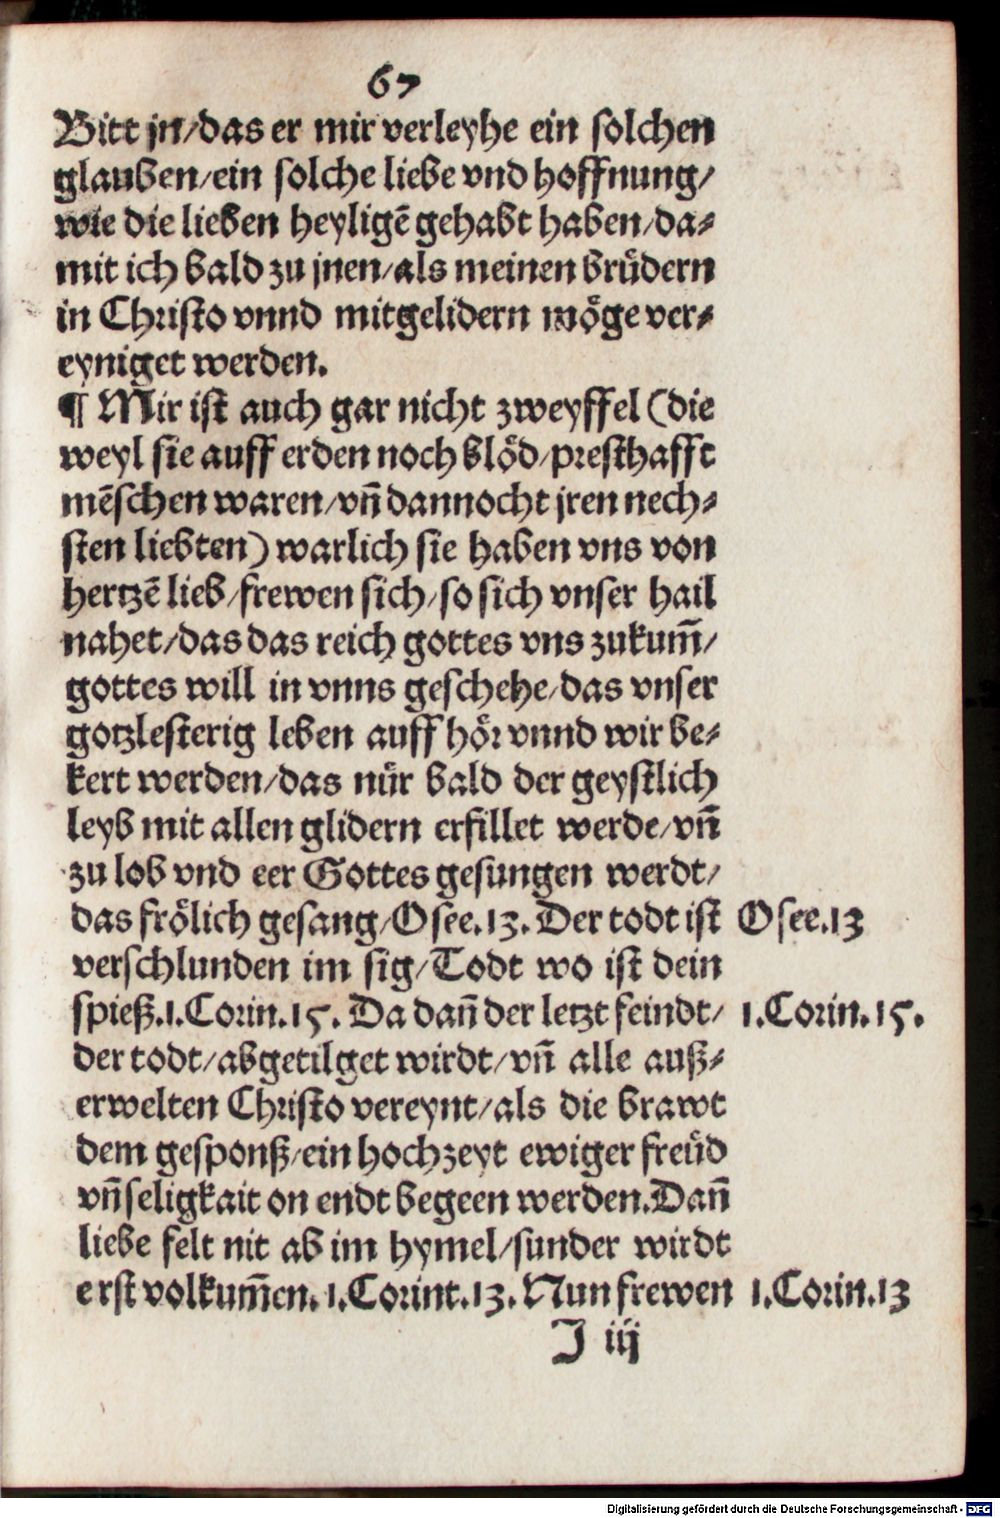 67
Bitt jn/das er mir verleyhe ein solchen
glauben/ein solche liebe vnd hoffnung/
wie die lieben heyligē gehabt haben/da⸗
mit ich bald zu jnen/als meinen brůdern
in Christo vnnd mitgelidern möge ver⸗
eyniget werden.
¶ Mir ist auch gar nicht zweyffel (die
weyl sie auff erden noch blöd/presthafft
mēschen waren/vn̄ dannocht jren nech⸗
sten liebten) warlich sie haben vns von
hertzē lieb/frewen sich/so sich vnser hail
nahet/das das reich gottes vns zukum̄/
gottes will in vnns geschehe/das vnser
gotzlesterig leben auff hör vnnd wir be⸗
kert werden/das nůr bald der geystlich
leyb mit allen glidern erfillet werde/vn̄
zu lob vnd eer Gottes gesungen werdt/
das frölich gesang/Osee.13. Der todt ist Osee.13
verschlunden im sig/Todt wo ist dein
spieß.1.Corin.15. Da dan̄ der letzt feindt/ 1.Corin.15.
der todt/abgetilget wirdt/vn̄ alle auß⸗
erwelten Christo vereynt/als die brawt
dem gesponß/ein hochzeyt ewiger freůd
vn̄ seligkait on endt begeen werden. Dan̄
liebe felt nit ab im hymel/sunder wirdt
erst volkum̄en. 1.Corint.13. Nun frewen 1.Corin.13
J iij
Digitalisierung gefördert durch die Deutsche Forschungsgemeinschaft - DFG